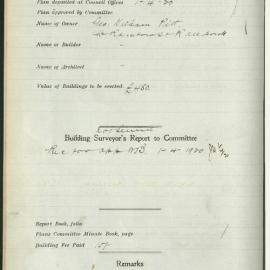 Plan deposited at Council Offices 1-4-20
Plan approved by Committee
Name of Owner Geo. Nelson Pitt
Name of Builder
Name of Architect
Value of Buildings to be erected £450
Building Surveyor's Report to Committee
1-4-1920
Report Book, folio
Plans Committee Minute Book, page
Building Fee Paid
Remarks